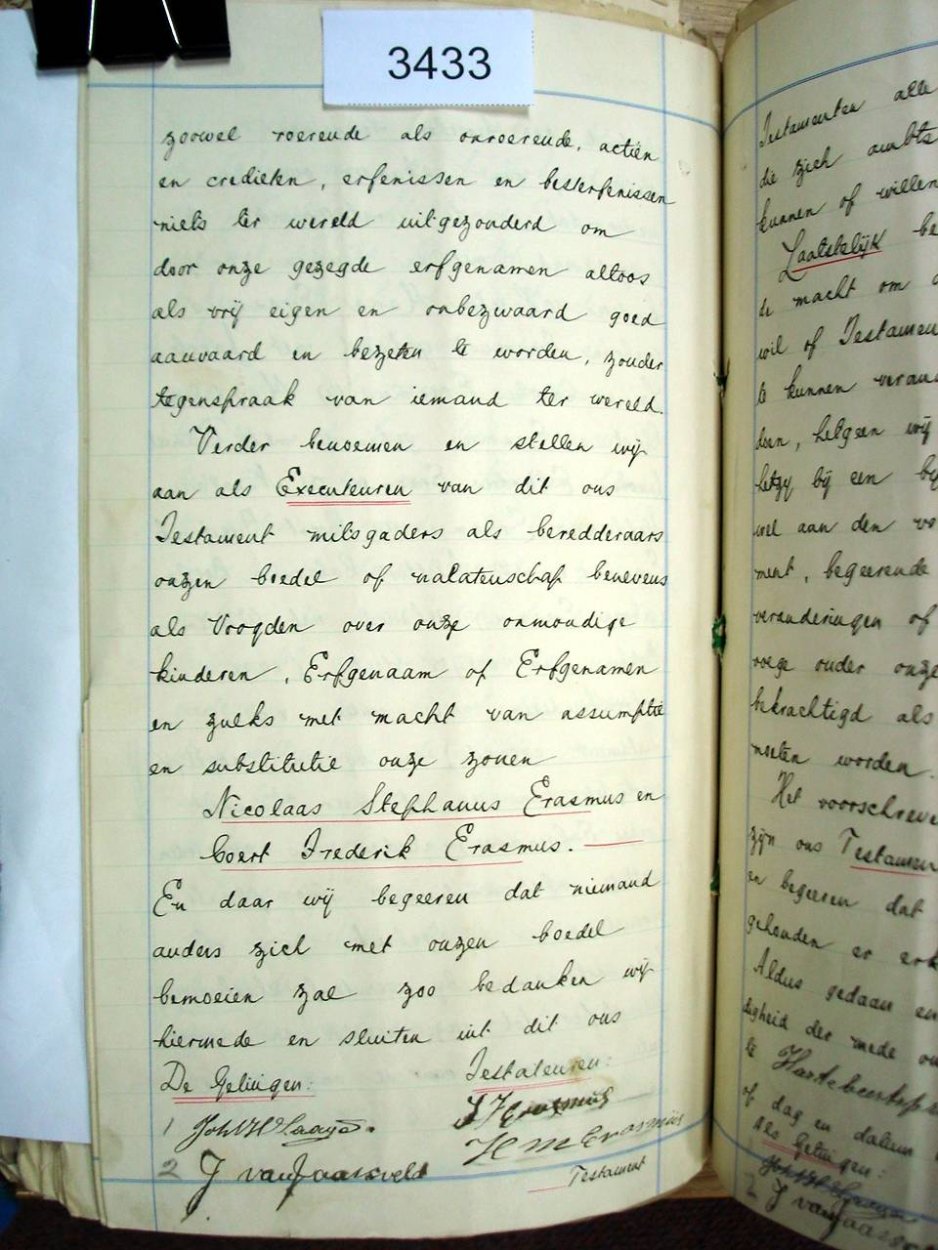 3433
zoowel roerende als onroerende, actiën
en credieten, erfenissen en besterfenissen
niets ter wereld uitgezonderd om
door onze gezegde erfgenamen altoos
als vrij eigen en onbezwaard goed
aanvaard en bezeten te worden, zonder
tegenspraak van iemand ter wereld.
Verder benoemen en stellen wij
aan als Executeuren van dit ons
Testament mitsgaders als beredderaars
onzen boedel of nalatenschap benevens
als Voogden over onze onmondige
kinderen, Erfgenaam of Erfgenamen
en zulks met macht van assumptie
en substitutie onze zonen
Nicolaas Stephanus Erasmus en
Coert Frederik Erasmus.
En daar wij begeeren dat niemand
anders zich met onzen boedel
bemoeien zal zoo bedanken wij
hiermede en sluiten uit dit ons
De Getuigen: Testateuren:
1
H M Erasmus
2 J van Jaarsveld
Testament
Testamenten alle
die zich ambts
kunnen of willen
Laatstelijk be
de macht om
wil of Testamen
te kunnen veran
doen, hetgeen wij
hetzij bij een
wel aan den vo
ment, begeerende
veranderingen of
voege onder onze
bekrachtigd als
moeten worden.
Het voorschreve
zijn ons Testamen
en begeeren dat
gehouden er erk
Aldus gedaan en
digheid der mede
te Hartebeestp
of dag en datum
Als Getuigen:
2 J van Jaars